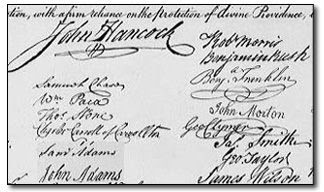 tion, with a firm reliance on the protection of divine Providence,
John Hancock
Robt Morris
Benjamin Rush
Benja Franklin
John Morton
Geo Clymer
Jas Smith
Geo. Taylor
James Wilson
Samuel Chase
Wm Paca
Thos Stone
Charles Carroll of Carrollton
Saml Adams
John Adams